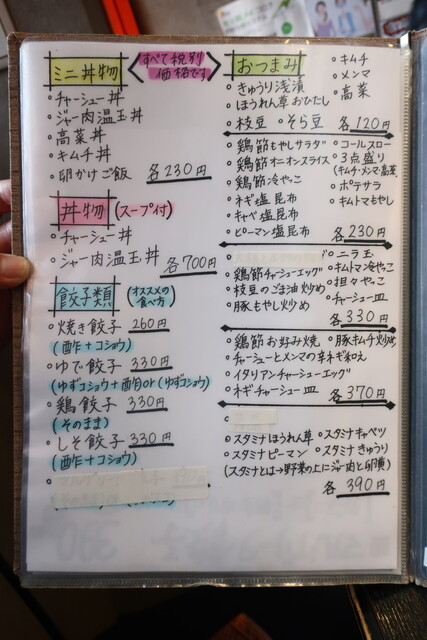 ミニ丼物
すべて税別
価格です
・チャーシュー丼
・ジャー肉温玉丼
・高菜丼
・キムチ丼
・卵かけご飯 各230円
丼物(スープ付)
・チャーシュー丼
・ジャー肉温玉丼 各700円
餃子類(オススメの食べ方)
・焼き餃子 260円
(酢+コショウ)
・ゆで餃子 330円
(ゆずコショウ+酢 or (ゆずコショウ)
・鶏餃子 330円
(そのまま)
・しそ餃子 330円
(酢+コショウ)
おつまみ
・きゅうり浅漬
・ほうれん草おひたし
・枝豆 ・そら豆
・キムチ
・メンマ
・高菜
各120円
・鶏節もやしサラダ
・鶏節オーオンスライス
・鶏節冷やっこ
・ネギ塩昆布
・キャベ塩昆布
・ピーマン塩昆布
・コールスロー
・3点盛り
(キムチ・メンマ・高菜)
・ポテサラ
・キムトマもやし
各230円
・鶏節チャーシューエッグ
・枝豆のごま油炒め
・豚もやし炒め
・ニラ玉
・キムトマン冷やっこ
・担々やっこ
・チャーシュー皿
各330円
・鶏節お好み焼 ・豚キムチ炒め
・チャーシューとメンマの辛ネギ和え
・イタリアンチャーシューエッグ
・ネギチャーシュー皿 各370円
・スタミナほうれん草 ・スタミナキャベツ
・スタミナピーマン ・スタミナきゅうり
(スタミナとは→野菜の上にジャー肉と卵黄)
各390円